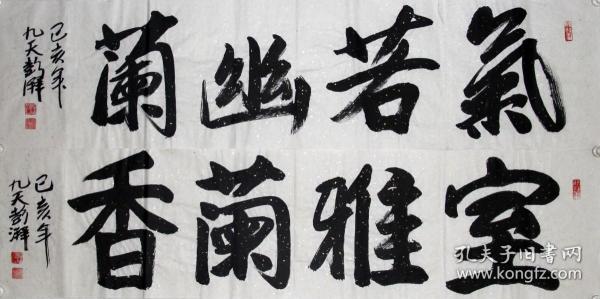 氣若幽蘭
己亥年
九天彭湃
室雅蘭香
己亥年
九天彭湃
孔夫子旧书网
www.kongfz.com